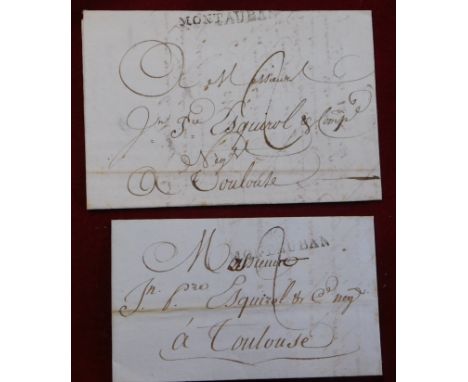 MONTAUBAN
A Messieurs
Jn. Pre. Esquirol & Compe.
Negts.
A Toulouse
MONTAUBAN
Messieurs
Jn. Pre. Esquirol & Ce. negts
à Toulouse